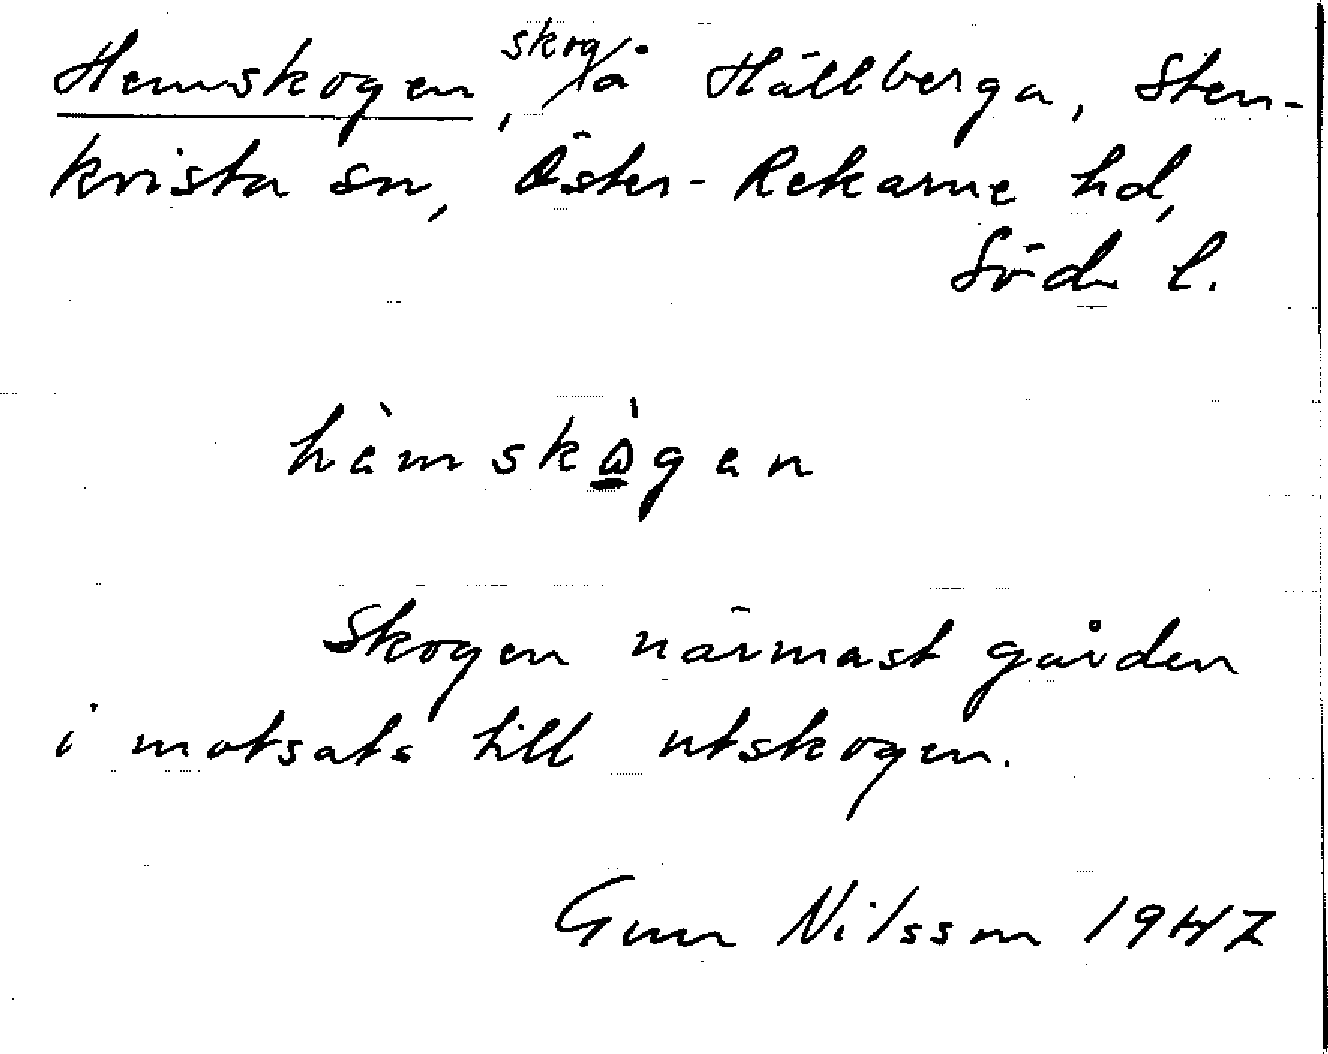 Hemskogen, skog/å Hällberga, Sten-
kvista sn, Öster-Rekarne hd,
Söd. l.
hèmskògen
Skogen närmast gården
i motsats till utskogen.
Gun Nilsson 1947